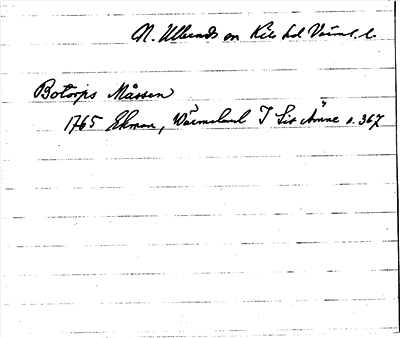 N. Ulleruds sn Kils hd Värml. l.
Botorps Måssen
1765 Ekman, Wärmeland I Sit Ämne s. 367